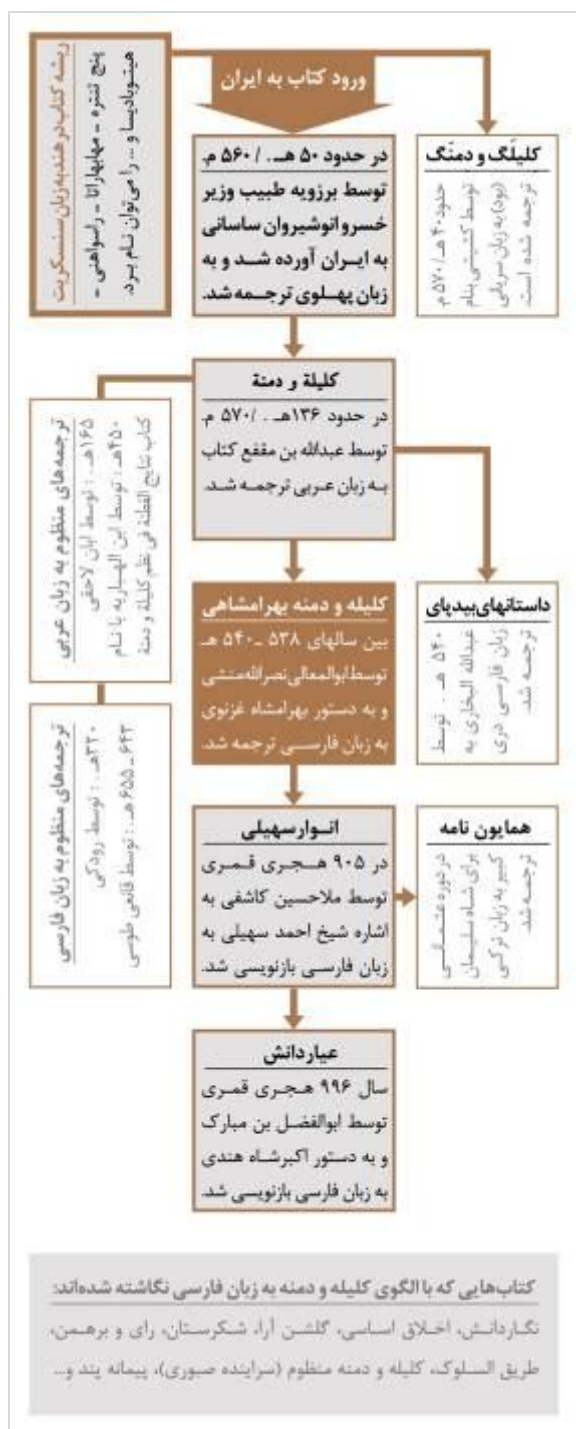 ریشه کتاب در هند به زبان سنسکریت
پنج تنتره - مهابهاراتا - راسواهنی -
هیتوپادیسا و ... را می‌توان نام برد.
ورود کتاب به ایران
در حدود ۵۰ هـ. / ۵۶۰ م.
توسط برزویه طبیب وزیر
خسرو انوشیروان ساسانی
به ایران آورده شد و به
زبان پهلوی ترجمه شد.
کلیلگ و دمنگ
حدود ۴۰ هـ/ ۵۷۰ م
توسط کشیشی بنام
(بود) به زبان سریانی
ترجمه شده است.
کلیلة و دمنة
در حدود ۱۳۶هـ . /۵۷۰ م.
توسط عبدالله بن مقفع کتاب
به زبان عربی ترجمه شد.
ترجمه‌های منظوم به زبان عربی
۱۶۵هـ . : توسط ابان لاحقی
۴۵۰هـ : توسط ابن الهباریه با نام
کتاب نتایج الفطنة فی نظم کلیلة و دمنة
داستانهای بیدپای
۵۴۰ هـ . توسط
عبدالله البخاری به
زبان فارسی دری
ترجمه شد.
کلیله و دمنه بهرامشاهی
بین سالهای ۵۳۸ - ۵۴۰ هـ
توسط ابوالمعالی نصرالله منشی
و به دستور بهرامشاه غزنوی
به زبان فارسی ترجمه شد.
ترجمه‌های منظوم به زبان فارسی
۳۲۰هـ . : توسط رودکی
۶۴۳ - ۶۵۵هـ . : توسط قانعی طوسی
انوار سهیلی
در ۹۰۵ هجری قمری
توسط ملاحسین کاشفی به
اشاره شیخ احمد سهیلی به
زبان فارسی بازنویسی شد.
همایون نامه
در دوره عثمانی
برای شاه سلیمان
کبیر به زبان ترکی
ترجمه شد.
عیار دانش
سال ۹۹۶ هجری قمری
توسط ابوالفضل بن مبارک
و به دستور اکبرشاه هندی
به زبان فارسی بازنویسی شد.
کتاب‌هایی که با الگوی کلیله و دمنه به زبان فارسی نگاشته شده‌اند:
نگار دانش، اخلاق اساسی، گلشن آرا، شکرستان، رای و برهمن،
طریق السلوک، کلیله و دمنه منظوم (سراینده صبوری)، پیمانه پند و...